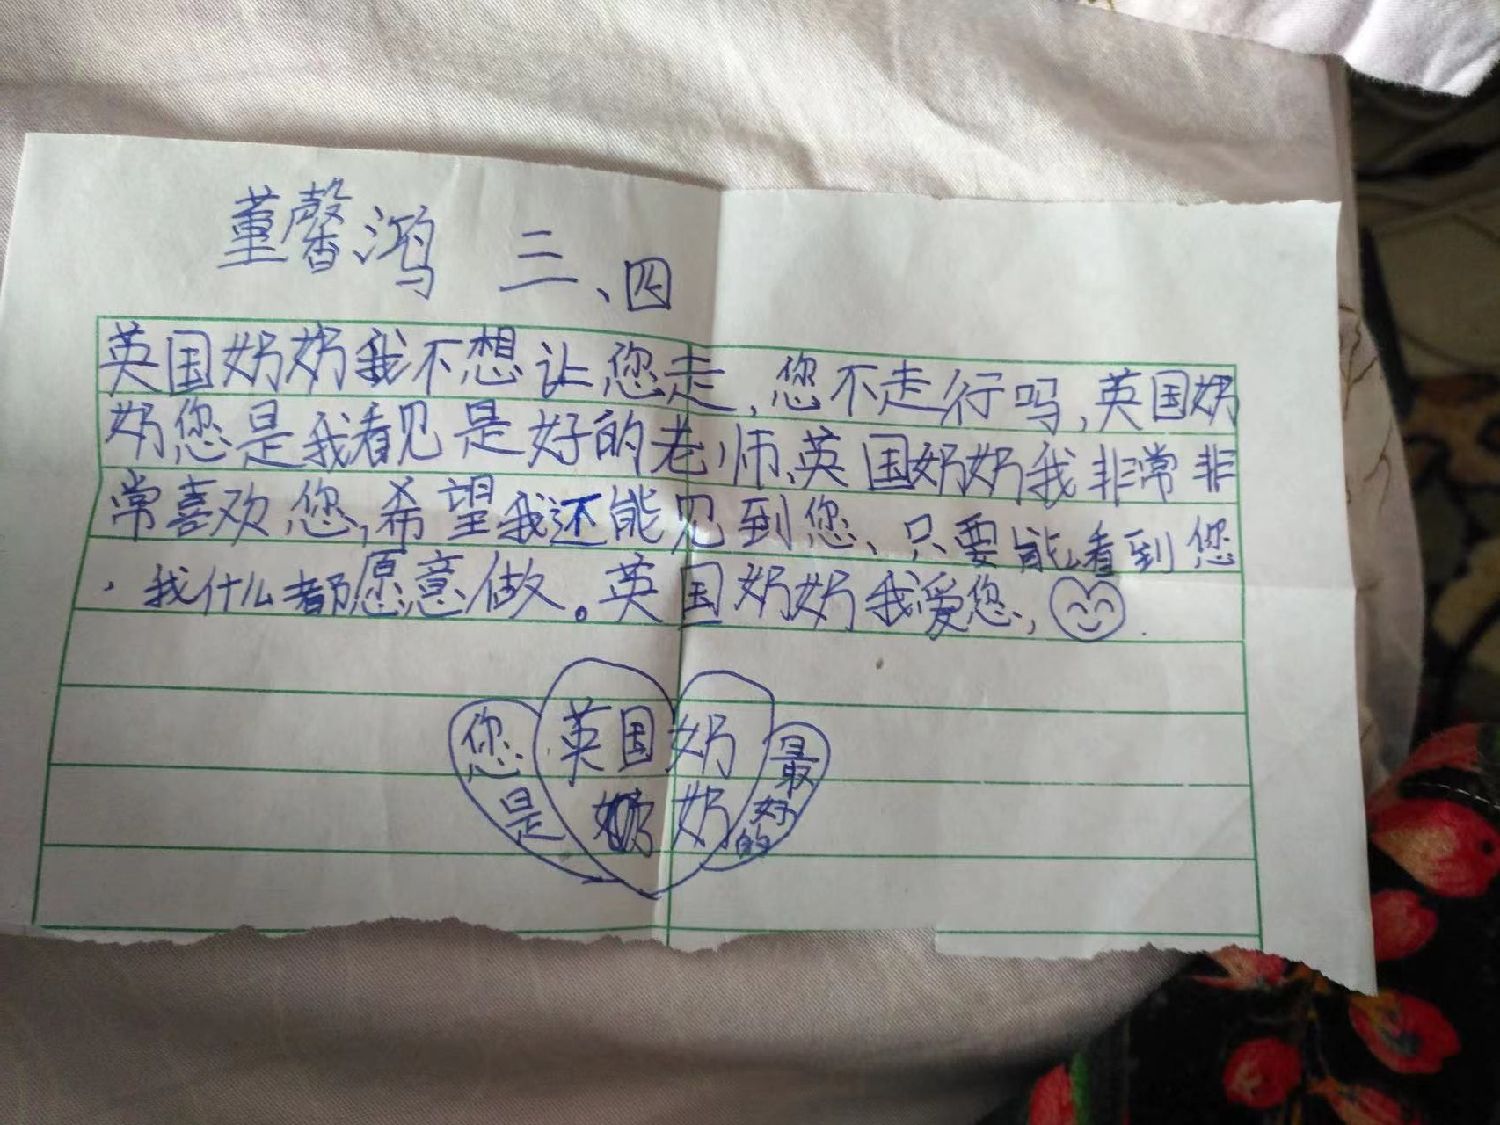 董馨鸿 三、四
英国奶奶我不想让您走,您不走行吗,英国奶
奶您是我看见是好的老师、英国奶奶我非常非
常喜欢您,希望我还能见到您、只要能看到您
,我什么都愿意做。英国奶奶我爱您,
您是
英国奶
奶奶
最好的